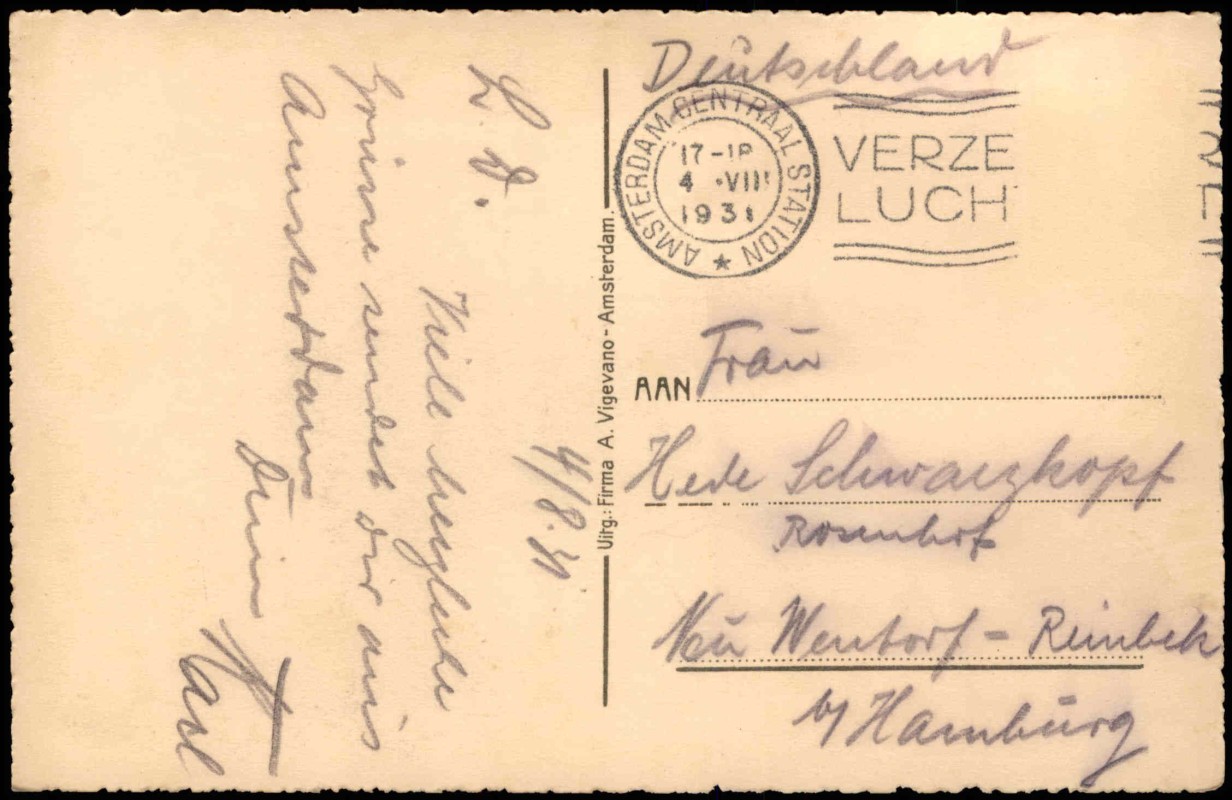 4/8.31
L. D.
Viele herzliche
Grüsse sendet dir aus
Amsterdam
Dein
Karl
Uitg.: Firma A. Vigevano - Amsterdam.
Deutschland
AMSTERDAM CENTRAAL STATION
17-18
4 VIII
1931
VERZE
LUCH
AAN Frau
Hede Schwarzkopf
Rosenhof
Neu Wentorf - Reinbek
b/ Hamburg